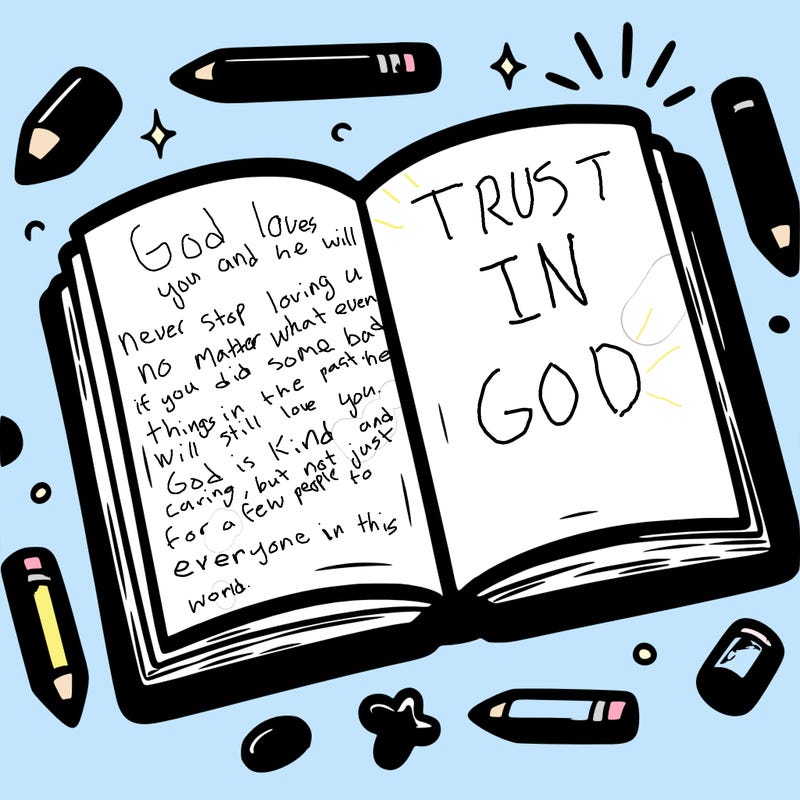 God loves
you and he will
never stop loving u
no matter what even
if you did some bad
things in the past.he
will still love you.
God is kind and
caring, but not just
for a few people to
everyone in this
world.
TRUST
IN
GOD